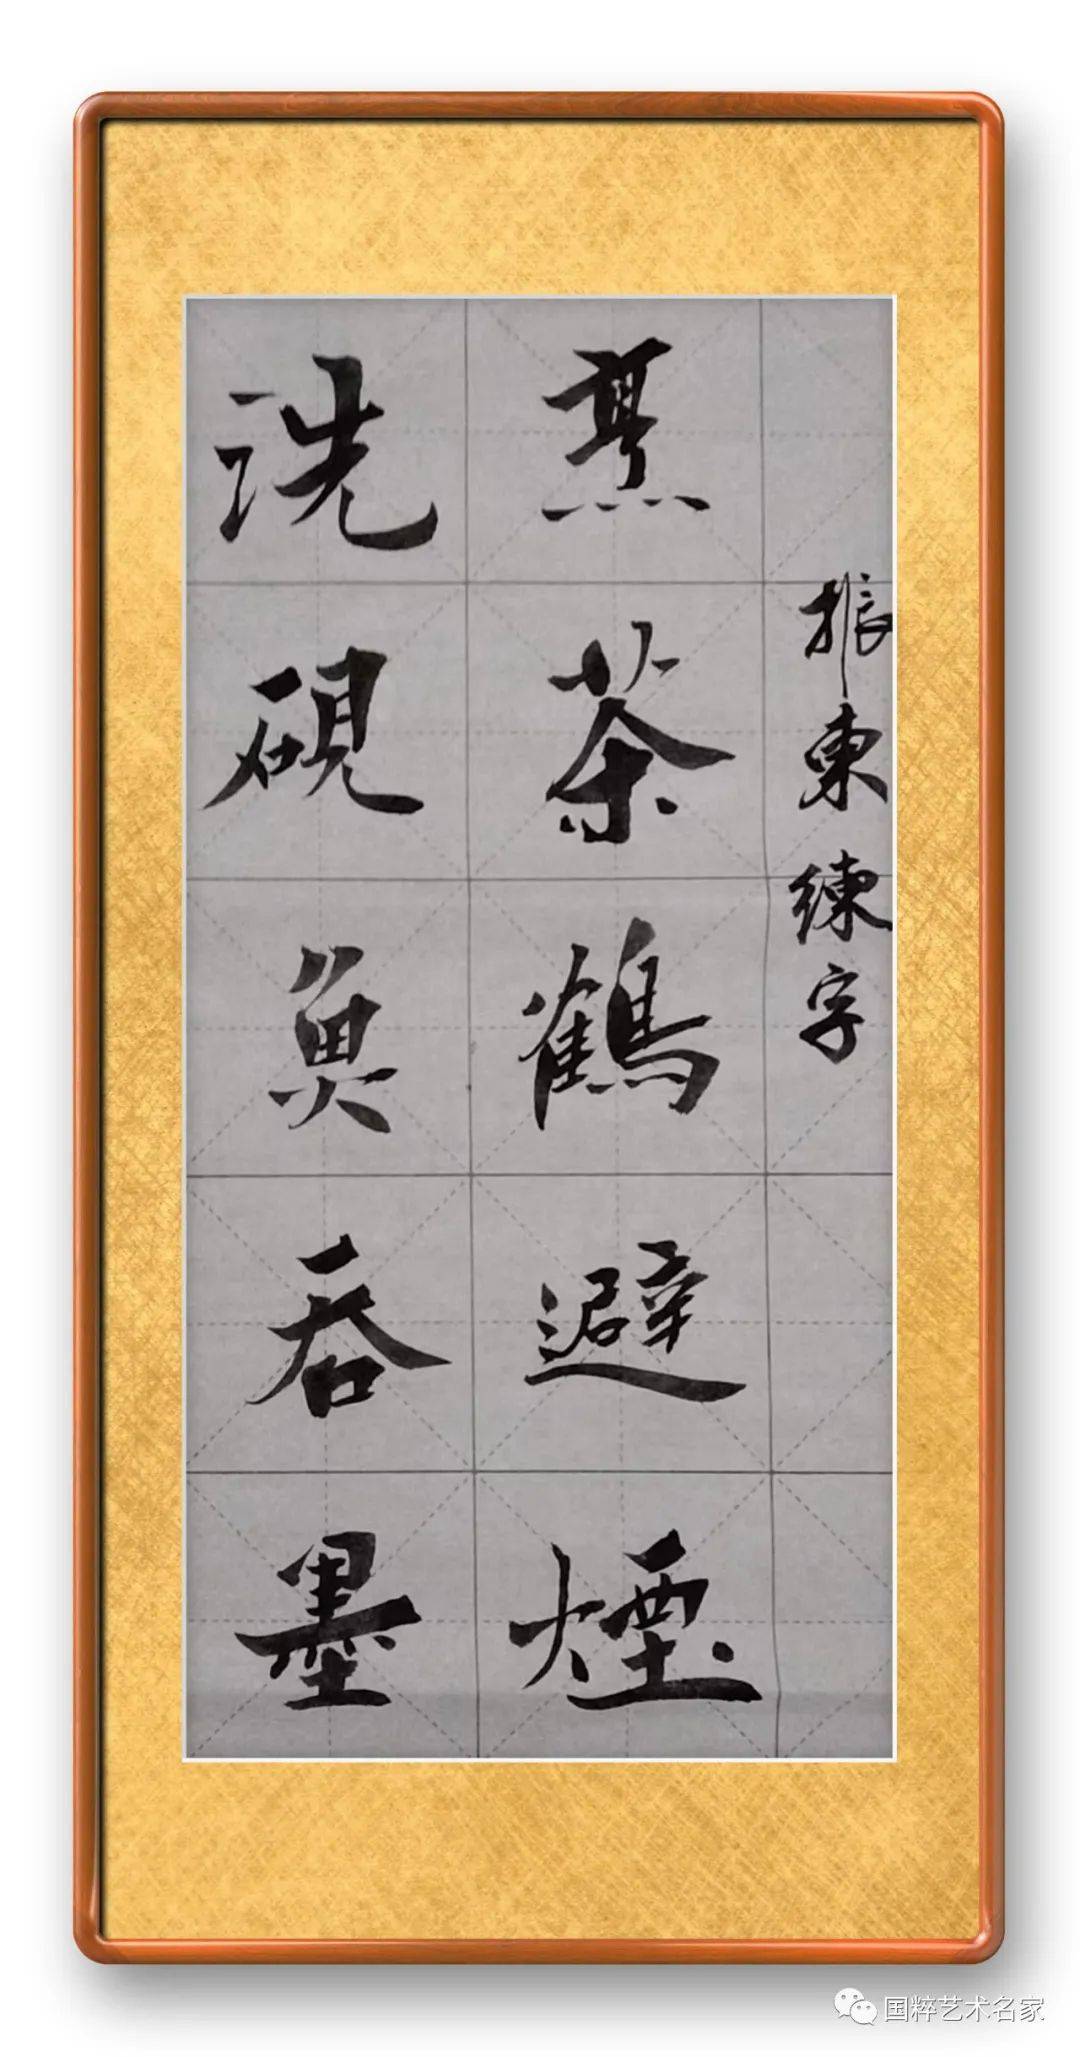 洗硯魚吞墨
烹茶鶴避煙
振東練字
国粹艺术名家